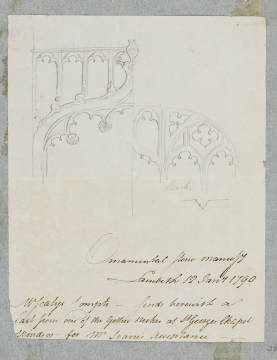 Back
Ornamental Stone Manufy
Lambeth 12 Jany 1790
Mrs Compts — sends herewith a
Cast from one of the Gothic Niches at St Georges Chapel
Windsor for Mr